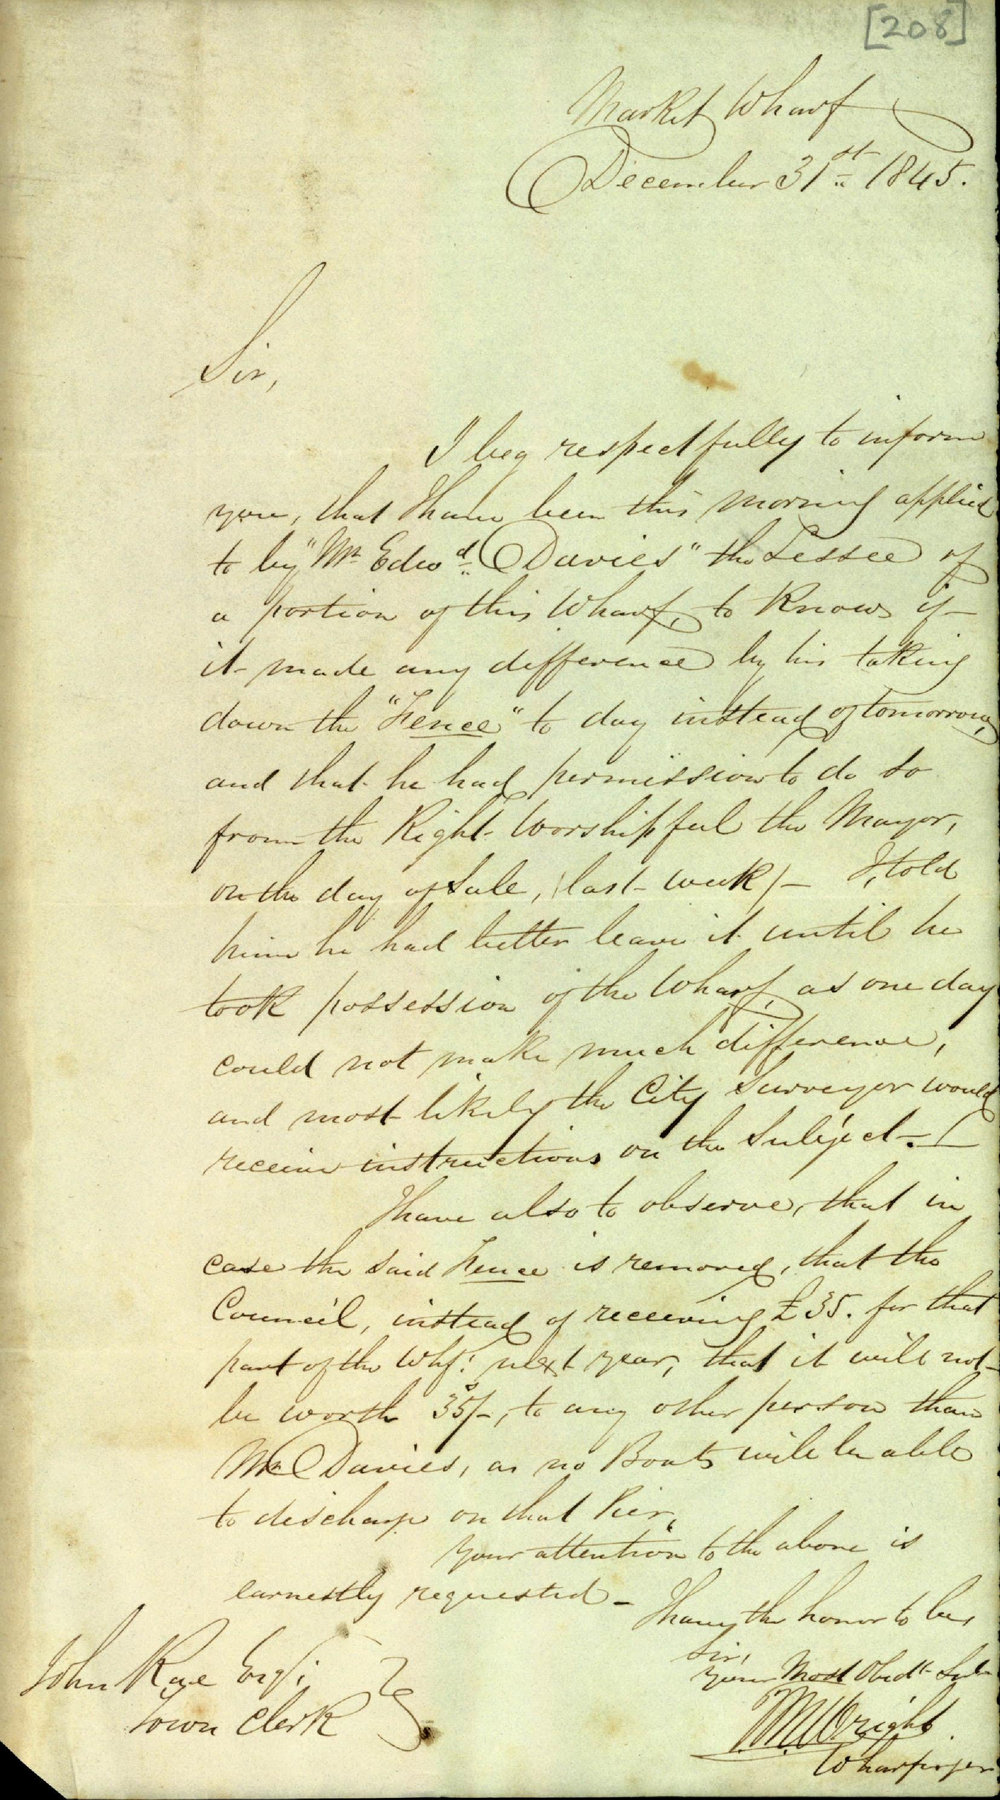 [208]
Market Wharf
December 31st 1845.
Sir,
I beg respectfully to inform
you, that I have been this morning applied
to by "Mr Edwd Davies" the Lessee of
a portion of this Wharf, to know if
it made any difference by his taking
down the "Fence" to day instead of tomorrow,
and that he had permission to do so
from the Right Worshipful the Mayor,
on the day of Sale, (last week) - I told
him he had better leave it until he
took possession of the Wharf, as one day
could not make much difference,
and most likely the City Surveyor would
receive instructions on the Subject. -
I have also to observe, that in
case the said Fence is removed, that the
Council, instead of receiving £35. for that
part of the Whf. next year, that it will not
be worth 35/-, to any other person than
Mr Davies, as no Boats will be able
to discharge on that Pier,
Your attention to the above is
earnestly requested -
I have the honor to be,
Sir,
Your Most Obedt Sert
Wright
Wharfinger
John Rae Esqr
Town Clerk